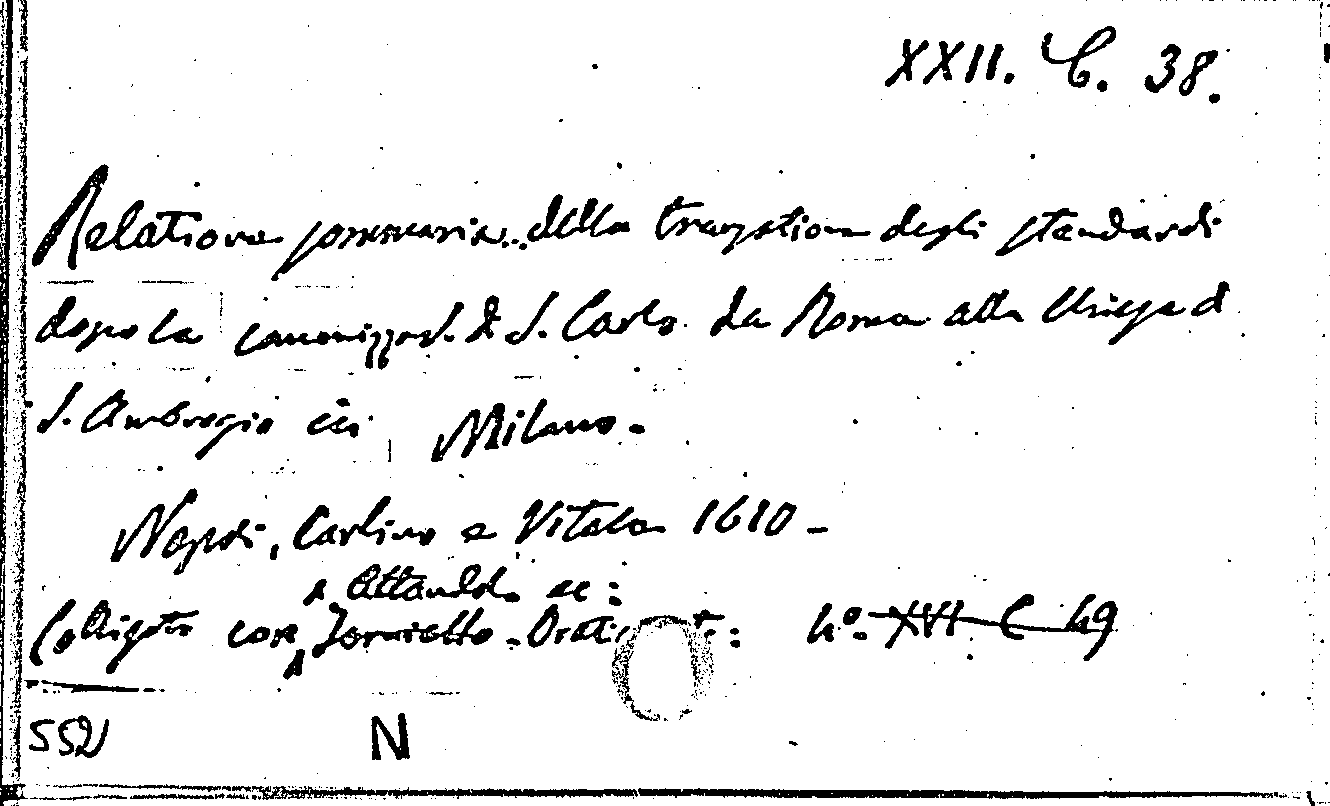 XXII. C. 38.
Relatione sommaria della traslatione degli stendardi
dopo la canonizzaz. di S. Carlo da Roma alla Chiesa d
S. Ambrogio in Milano.
Napoli, Carlino e Vitale 1610 -
Obligato con Orat 4°. XVI C 49
552
N